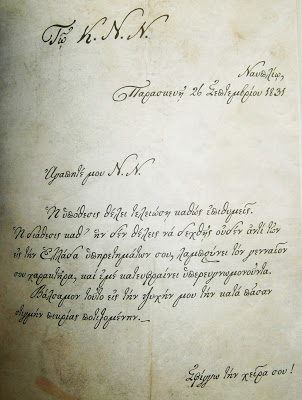 Τῷ Κ. Ν. Ν.
Ναυπλίῳ,
Παρασκευῇ 26 Σεπτεμβρίου 1831
Ἀγαπητέ μου Ν. Ν.
Ἡ ὑπόθεσις θέλει τελειώση καθὼς ἐπιθυμεῖς.
Ἡ διάθεσις καθ' ἣν δὲν θέλεις νὰ δεχθῇς οὐδὲν ἀντὶ τῶν
εἰς τὴν Ἑλλάδα ὑπηρετημάτων σου, λαμπρύνει τὸν γενναῖον
σου χαρακτῆρα, καὶ ἐμὲ κατευφραίνει
Βάλσαμον τοῦτο εἰς τὴν ψυχήν μου τὴν κατὰ πᾶσαν
στιγμὴν πικρίας ποτιζομένην.
Σφίγγω τὴν χεῖρα σου!